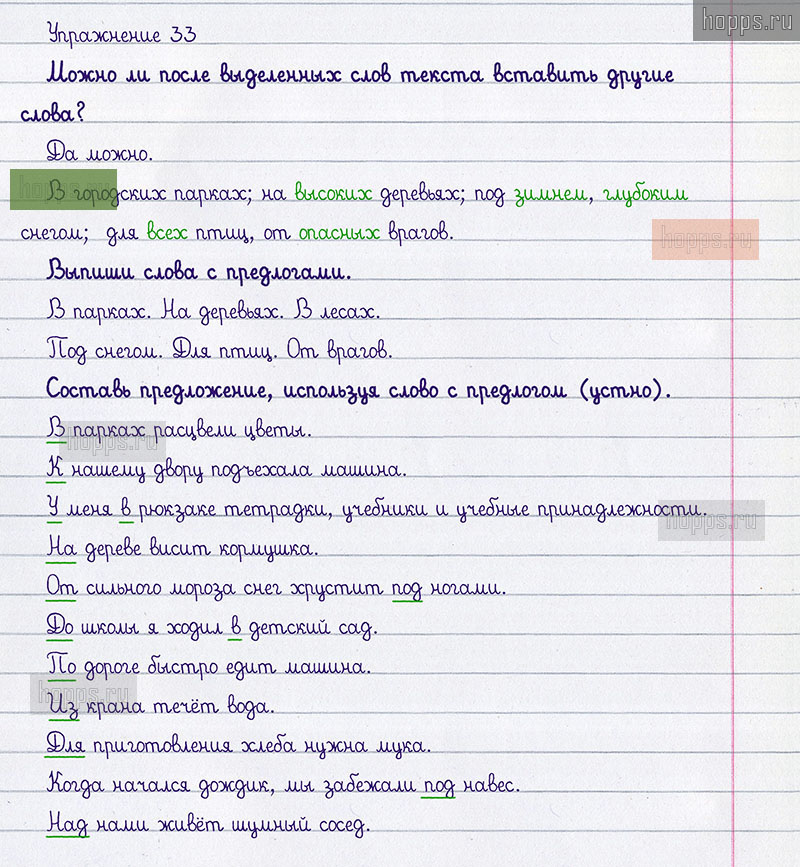 hopps.ru
Упражнение 33
Можно ли после выделенных слов текста вставить другие
слова?
Да можно.
В городских парках; на высоких деревьях; под зимнем, глубоким
hopps.ru
снегом; для всех птиц, от опасных врагов.
hopps.ru
Выпиши слова с предлогами.
В парках. На деревьях. В лесах.
Под снегом. Для птиц. От врагов.
Составь предложение, используя слово с предлогом (устно).
В парках расцвели цветы.
hopps.ru
К нашему двору подъехала машина.
У меня в рюкзаке тетрадки, учебники и учебные принадлежности.
hopps.ru
На дереве висит кормушка.
От сильного мороза снег хрустит под ногами.
До школы я ходил в детский сад.
По дороге быстро едит машина.
hopps.ru
Из крана течёт вода.
Для приготовления хлеба нужна мука.
Когда начался дождик, мы забежали под навес.
Над нами живёт шумный сосед.